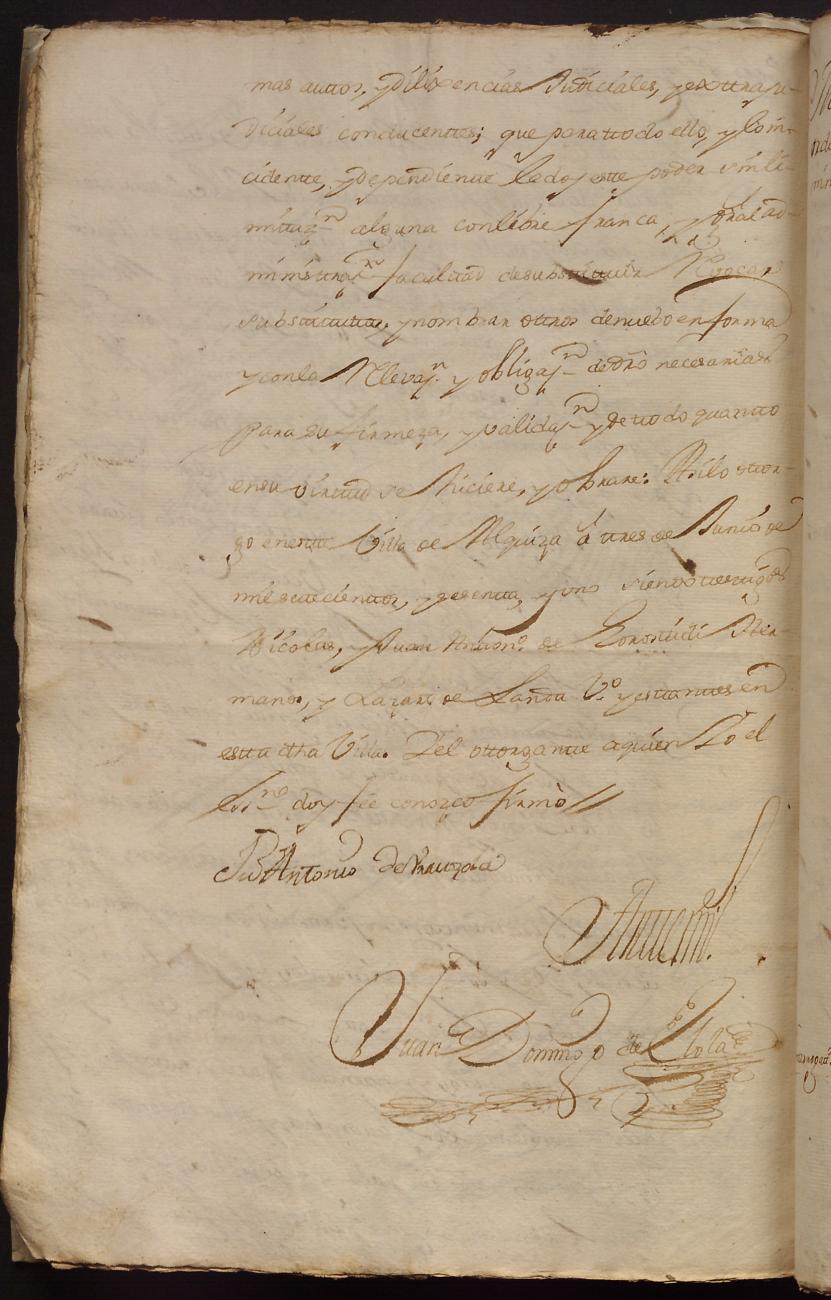 mas auttos, y dilixencias Judiciales, y exttraju-
diciales conducenttes; que para ttodo ello, y lo in-
cidentte, y dependientte le doy este poder sin li-
mittaz.n alguna con libre franca, y gral ad-
ministraz.n facultad de substituir Rebocar
substitutos, y nombrar ottros de nuebo en forma
y con la Relevaz.n y obligaz.n de dro necesarias
para su firmeza, y validaz.n y de ttodo quantto
en su virtud se hiciere, y obrare: Asi lo ottor-
go en esta Villa de Albquiza á ttres de Junio de
mil settecienttos, y sesentta, y uno siendo testigos
Nicolas, y Juan Anton.o de Gorostidi Her-
manos, y Lazaro de Landa V.os y estanttes en
estta dha Villa. Y el ottorgantte a quien Yo el
Ess.no doy fee conozco firmò //
Antonio de
Antte mi.
Juan Domingo de